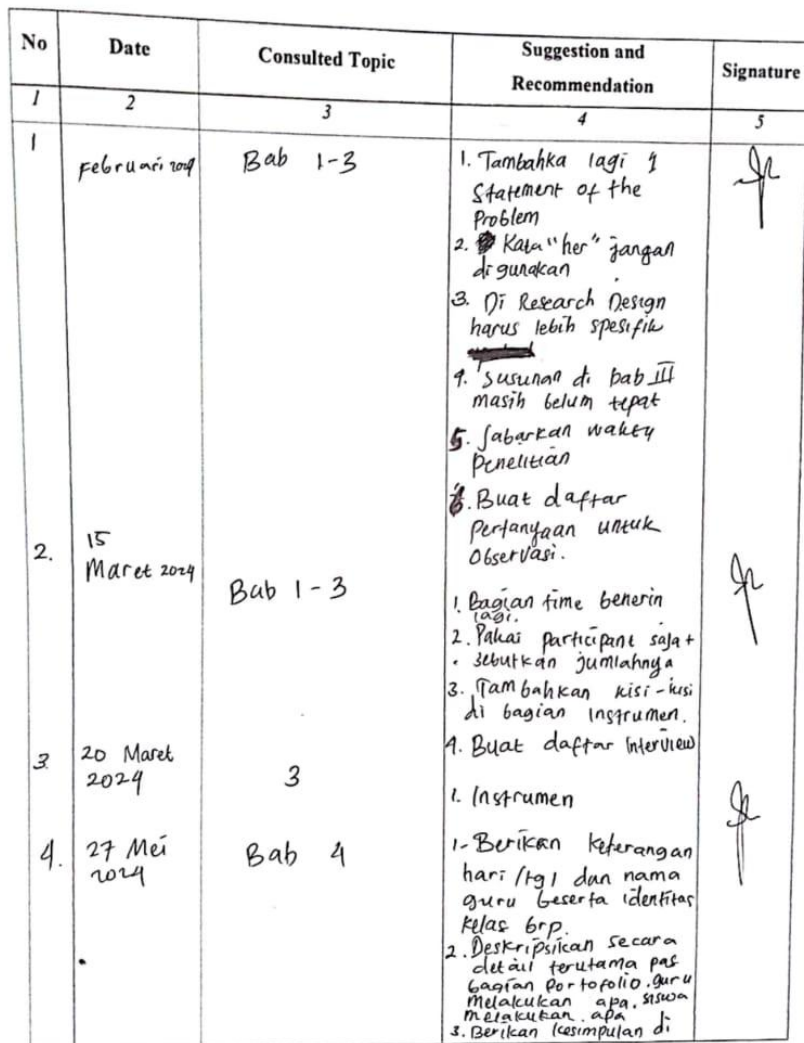 No Date Consulted Topic Suggestion and Recommendation Signature
1 2 3 4 5
1 Februari 2024 Bab 1-3 1. Tambahka lagi 1
Statement of the
Problem
2. Kata "her" jangan
digunakan
3. Di Research Design
harus lebih spesifik
4. Susunan di bab III
masih belum tepat
5. Jabarkan waktu
Penelitian
6. Buat daftar
Pertanyaan untuk
Observasi.
2. 15 Maret 2024 Bab 1-3
1. Bagian time benerin
lagi.
2. Pakai participant saja +
sebutkan jumlahnya
3. Tambahkan kisi-kisi
di bagian instrumen.
4. Buat daftar Interview
3 20 Maret 2024 3
1. Instrumen
4. 27 Mei 2024 Bab 4
1- Berikan keterangan
hari /tgl dan nama
guru beserta identitas
kelas brp.
2. Deskripsikan secara
detail terutama pas
bagian Portofolio. guru
melakukan apa, siswa
melakukan apa
3. Berikan kesimpulan di